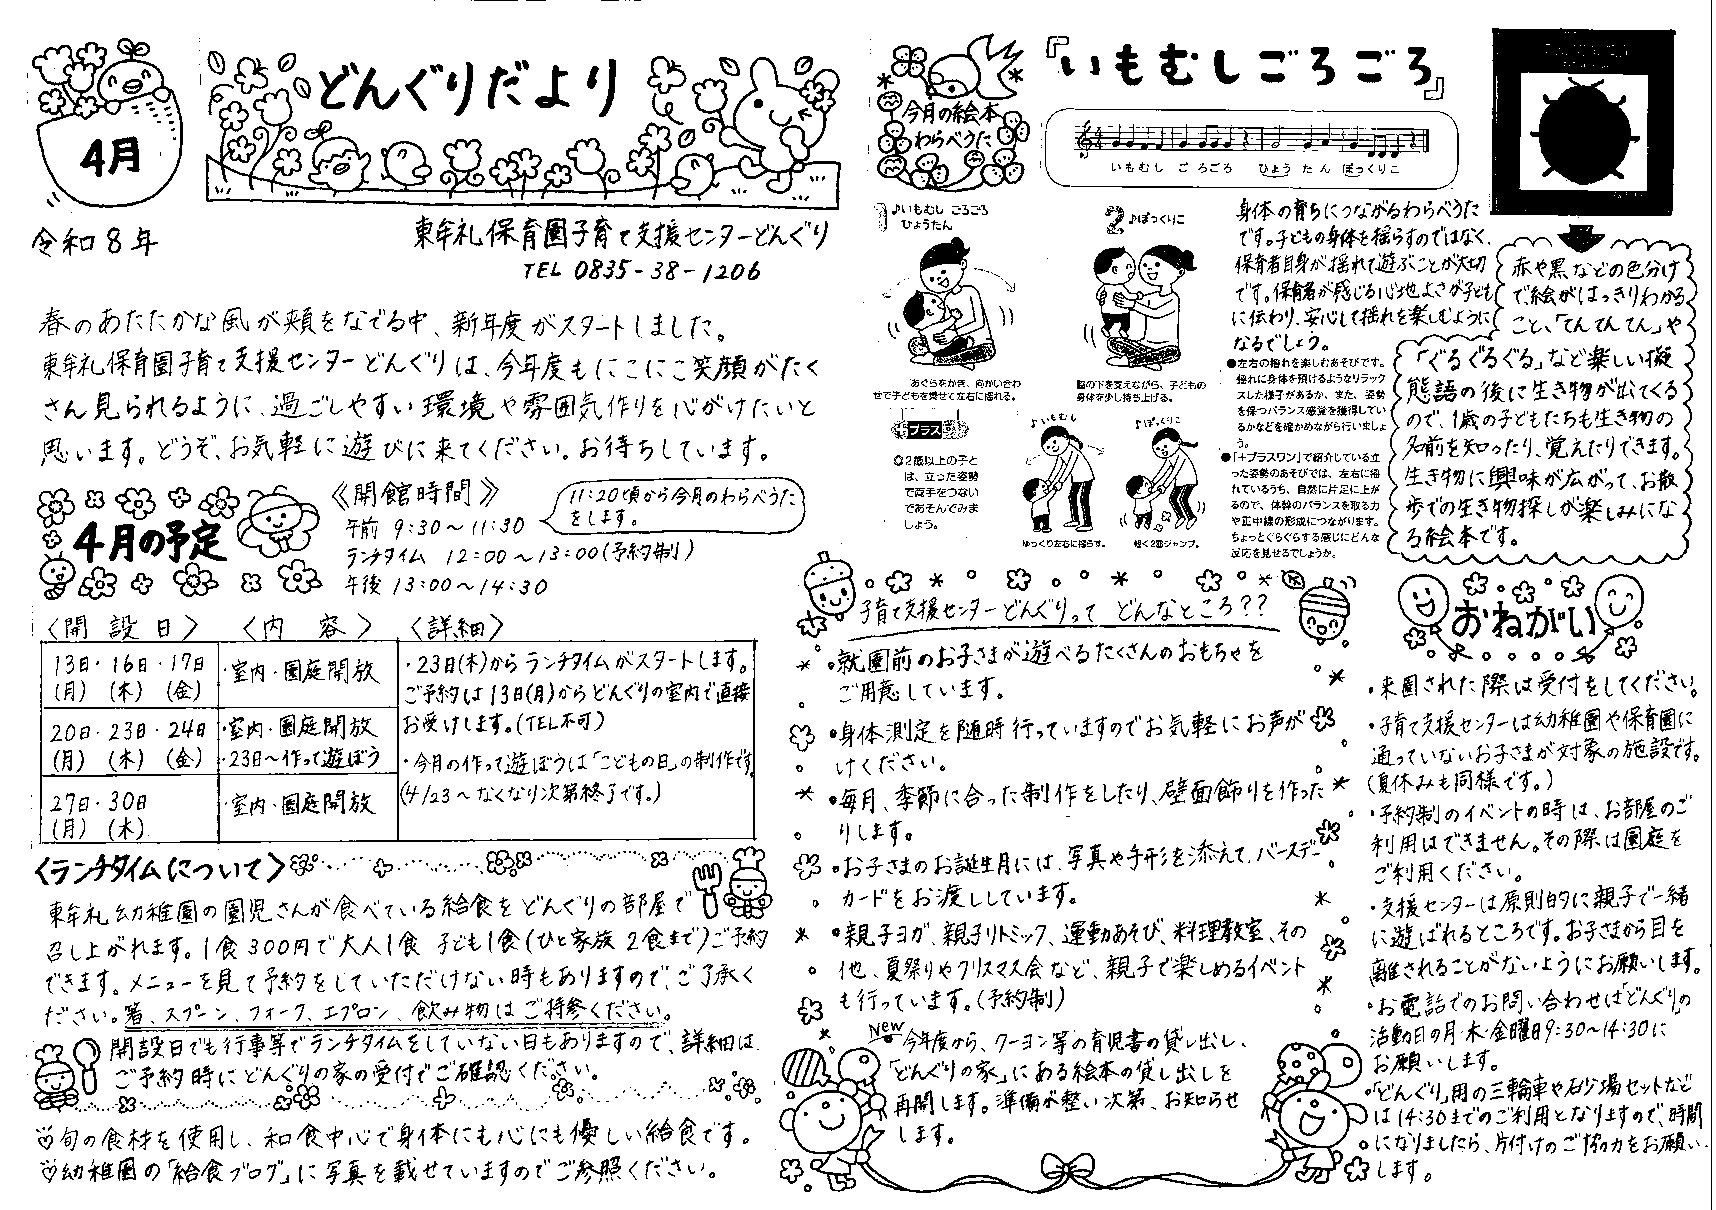 4月
どんぐりだより
令和8年
東牟礼保育園子育て支援センターどんぐり
TEL 0835-38-1206
春のあたたかな風が頬をなでる中、新年度がスタートしました。
東牟礼保育園子育て支援センターどんぐりは、今年度もにこにこ笑顔がたく
さん見られるように、過ごしやすい環境や雰囲気作りを心がけたいと
思います。どうぞ、お気軽に遊びに来てください。お待ちしています。
4月の予定
《開館時間》
午前 9:30〜11:30
ランチタイム 12:00〜13:00(予約制)
午後 13:00〜14:30
11:20頃から今月のわらべうた
をします。
〈開設日〉 〈内容〉 〈詳細〉
13日・16日・17日
(月) (木) (金)
・室内・園庭開放
20日・23日・24日
(月) (木) (金)
・室内・園庭開放
・23日〜作って遊ぼう
27日・30日
(月) (木)
・室内・園庭開放
・23日(木)からランチタイムがスタートします。
ご予約は13日(月)からどんぐりの室内で直接
お受けします。(TEL不可)
・今月の作って遊ぼうは「こどもの日」の制作です。
(4/23〜なくなり次第終了です。)
〈ランチタイムについて〉
東牟礼幼稚園の園児さんが食べている給食をどんぐりの部屋で
召し上がれます。1食300円で大人1食 子ども1食(ひと家族 2食まで)ご予約
できます。メニューを見て予約をしていただけない時もありますので、ご了承く
ださい。箸、スプーン、フォーク、エプロン、飲み物はご持参ください。
開設日でも行事等でランチタイムをしていない日もありますので、詳細は
ご予約時にどんぐりの家の受付でご確認ください。
♡旬の食材を使用し、和食中心で身体にも心にも優しい給食です。
♡幼稚園の「給食ブログ」に写真を載せていますのでご参照ください。
今月の絵本
わらべうた
『いもむしごろごろ』
いもむし ご ろごろ ひょう たん ぽっくりこ
1 ♪いもむし ごろごろ
ひょうたん
あぐらをかき、向かい合わ
せで子どもを乗せて左右に揺れる。
2 ♪ぽっくりこ
脇の下を支えながら、子どもの
身体を少し持ち上げる。
プラス
✿2歳以上の子と
は、立った姿勢
で両手をつない
であそんでみま
しょう。
♪いもむし
ゆっくり左右に揺らす。
♪ぽっくりこ
軽く2回ジャンプ。
身体の育ちにつながるわらべうた
です。子どもの身体を揺らすのではなく、
保育者自身が揺れて遊ぶことが大切
です。保育者が感じる心地よさが子ども
に伝わり、安心して揺れを楽しむように
なるでしょう。
●左右の揺れを楽しむあそびです。
揺れに身体を預けるようなリラック
スした様子があるか、また、姿勢
を保つバランス感覚を獲得してい
るかなどを確かめながら行いましょ
う。
●「+プラスワン」で紹介している立
った姿勢のあそびでは、左右に揺
れているうち、自然に片足に上が
るので、体幹のバランスを取る力
や正中線の形成につながります。
ちょっとぐらぐらする感じにどんな
反応を見せるでしょうか。
赤や黒などの色分け
で絵がはっきりわかる
こと、「てんてんてん」や
「ぐるぐるぐる」など楽しい擬
態語の後に生き物が出てくる
ので、1歳の子どもたちも生き物の
名前を知ったり、覚えたりできます。
生き物に興味が広がって、お散
歩での生き物探しが楽しみにな
る絵本です。
子育て支援センターどんぐりって どんなところ??
●就園前のお子さまが遊べるたくさんのおもちゃを
ご用意しています。
●身体測定を随時行っていますのでお気軽にお声が
けください。
●毎月、季節に合った制作をしたり、壁面飾りを作った
りします。
●お子さまのお誕生月には、写真や手形を添えて、バースデー
カードをお渡ししています。
●親子ヨガ、親子リトミック、運動あそび、料理教室、その
他、夏祭りやクリスマス会など、親子で楽しめるイベント
も行っています。(予約制)
New
今年度から、クーヨン等の育児書の貸し出し、
「どんぐりの家」にある絵本の貸し出しを
再開します。準備が整い次第、お知らせ
します。
おねがい
・来園された際は受付をしてください。
・子育て支援センターは幼稚園や保育園に
通っていないお子さまが対象の施設です。
(夏休みも同様です。)
・予約制のイベントの時は、お部屋のご
利用はできません。その際は園庭を
ご利用ください。
・支援センターは原則的に親子で一緒
に遊ばれるところです。お子さまから目を
離されることがないようにお願いします。
・お電話でのお問い合わせは「どんぐり」の
活動日の月・木・金曜日9:30〜14:30に
お願いします。
・「どんぐり」用の三輪車や砂場セットなど
は14:30までのご利用となりますので、時間
になりましたら、片付けのご協力をお願い
します。